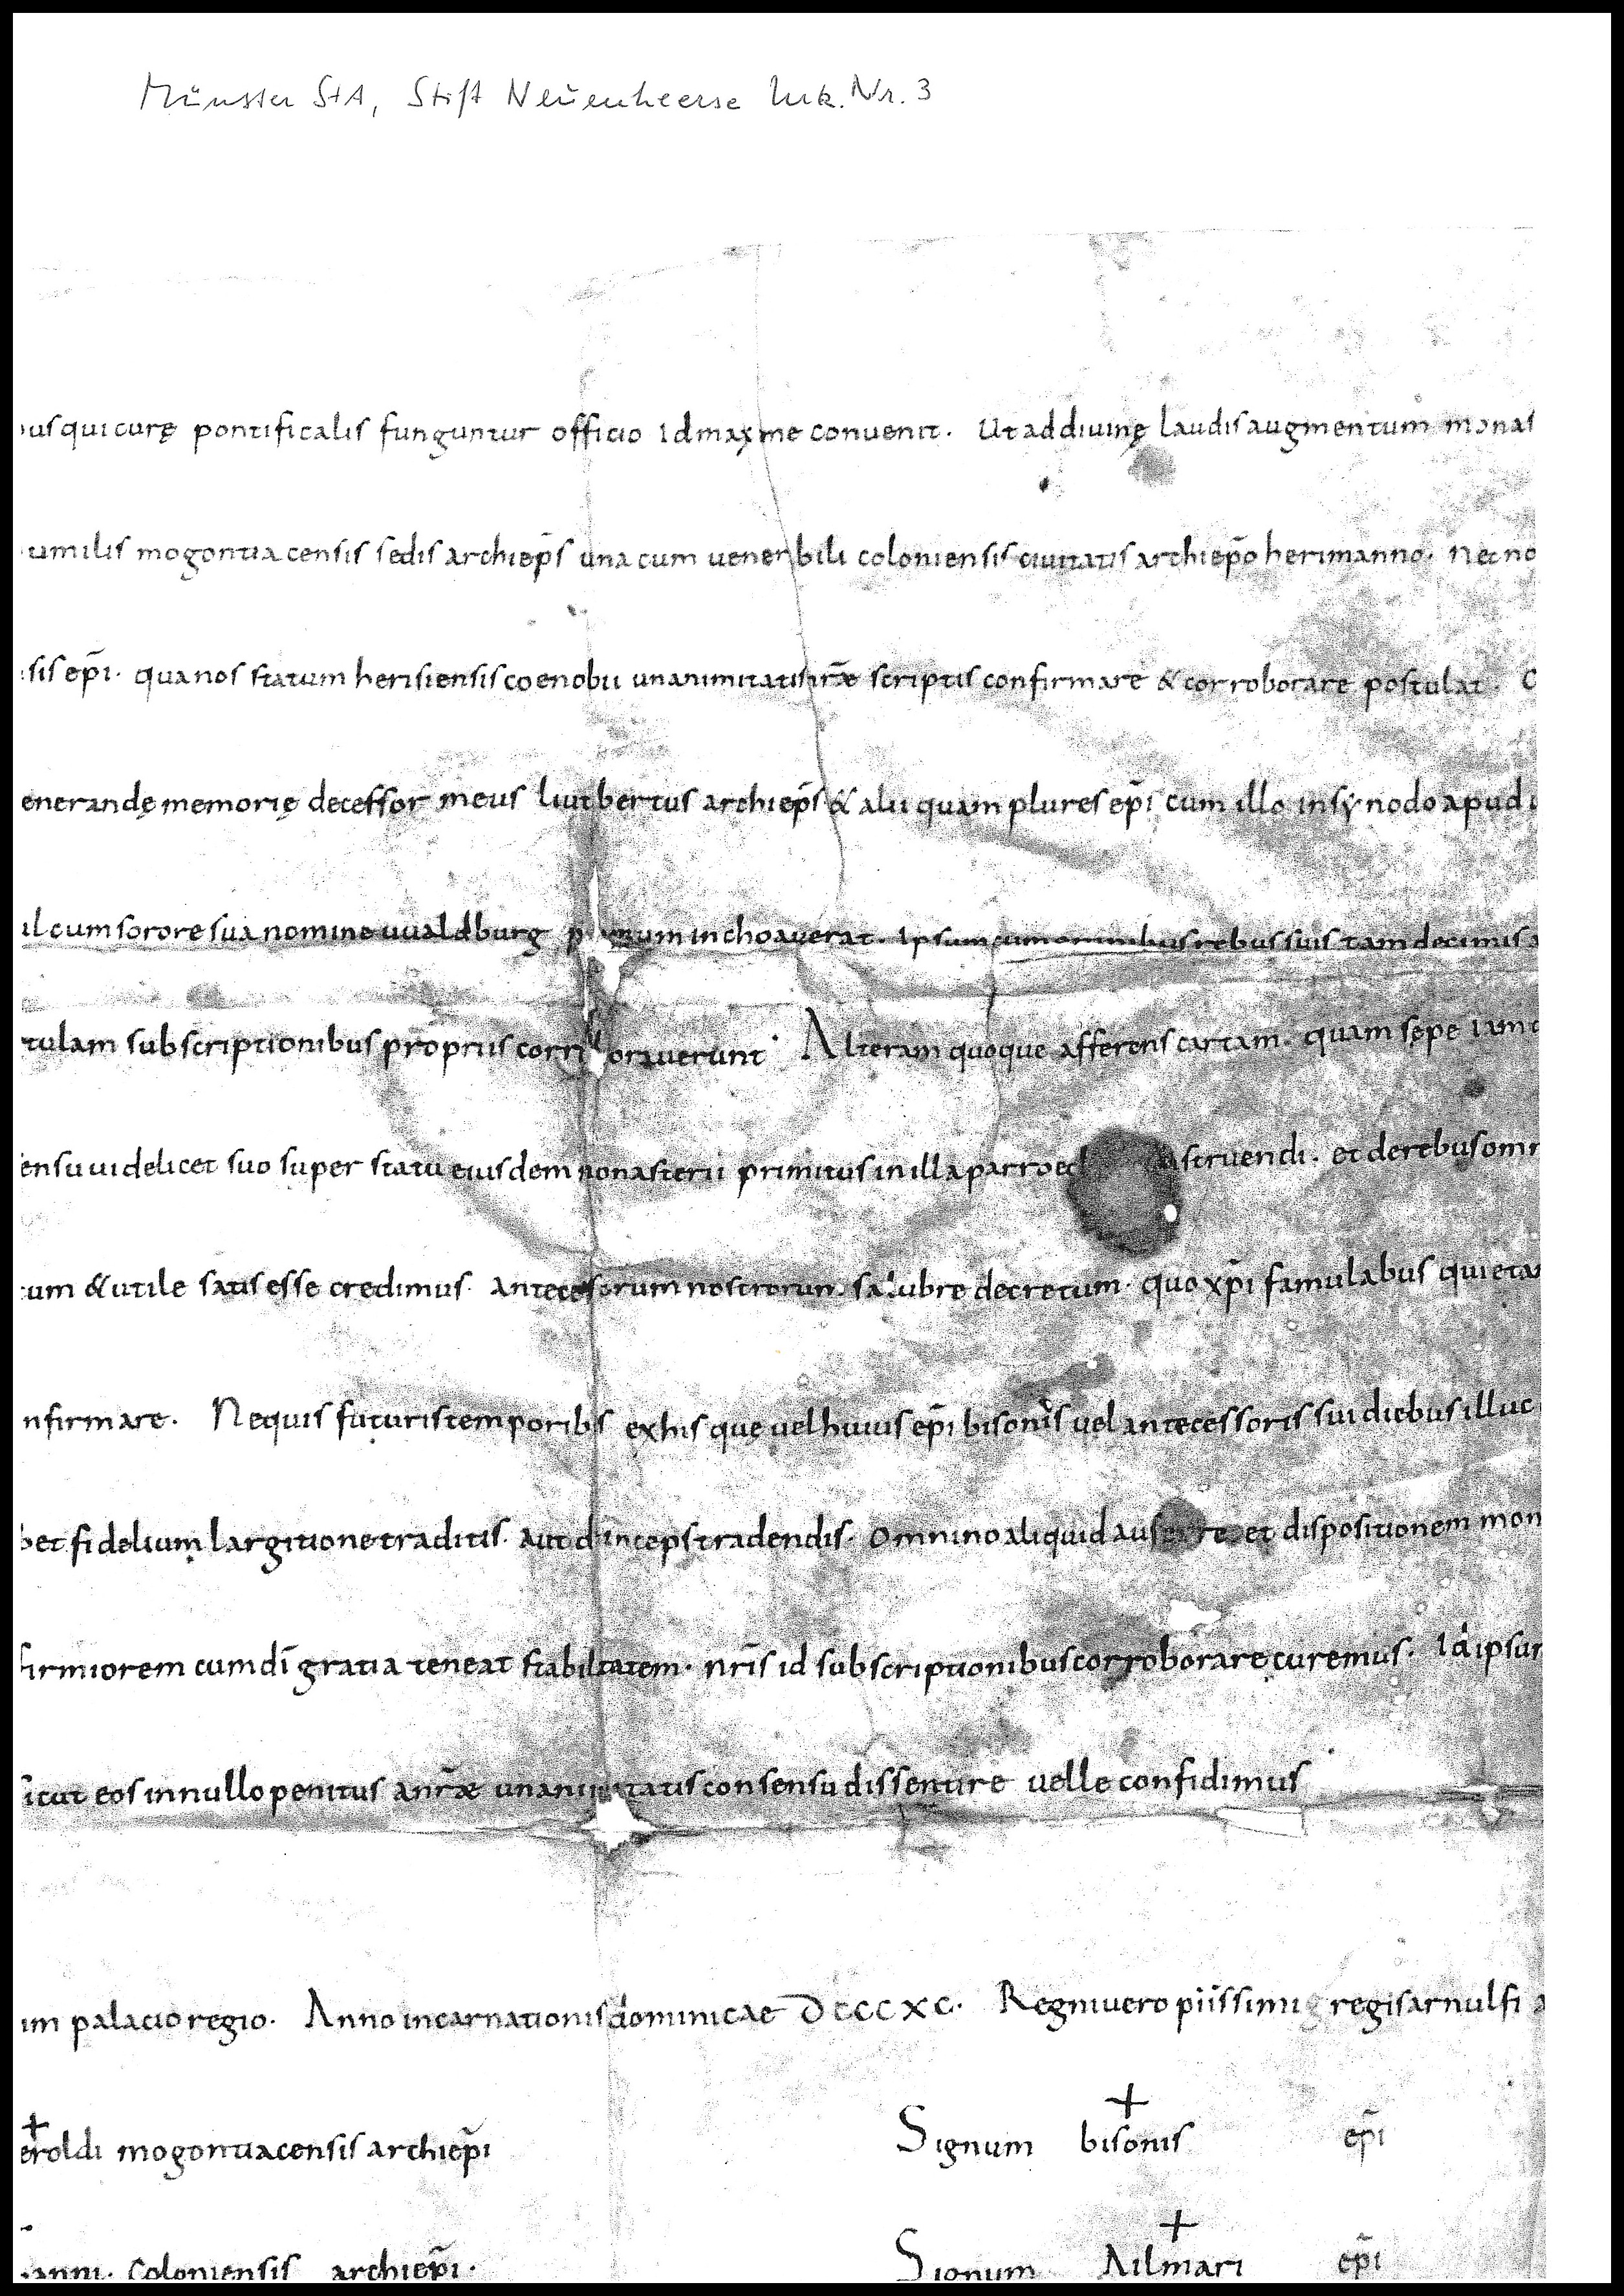 Münster StA, Stift Neuenheerse Urk. Nr. 3
us qui curę pontificalis funguntur officio Id maxime convenit. Ut ad divinę laudis augmentum monas
umilis mogontiacensis sedis archiep̄s una cum venerabili coloniensis civitatis archiep̄o herimanno. Necno
sis ep̄i. qua nos statum herisiensis coenobii unanimitatis nr̄ae scriptis confirmare & corroborare postulat.
enerandę memorię decessor meus liutbertus archiep̄s & alii quam plures ep̄i cum illo in synodo apud
il cum sorore sua nomine uualdburg inchoaverat. Ipsum cum omnibus rebus suis tam decimis
tulam subscriptionibus propriis corroboraverunt. Alteram quoque afferens cartam. quam sępe iam
ensu videlicet suo super statu eiusdem monasterii primitus in illa struendi. et de rebus omn
um & utile satis esse credimus. Antecessorum nostrorum salubre decretum. quo xp̄i famulabus quieta
nfirmare. Ne quis futuris temporibus ex his quę vel huius ep̄i bisonis vel antecessoris sui diebus illuc
bet fidelium largitione traditis. aut deinceps tradendis. Omnino aliquid auferre et dispositionem mon
firmiorem cum dī gratia teneat stabilitatem. nr̄is id subscriptionibus corroborare curemus. Id ipsum
icut eos in nullo penitus a nr̄ae unanimitatis consensu dissentire velle confidimus
im palacio regio. Anno incarnationis dominicae DCCCXC. Regni vero piissimi regis arnulfi
eroldi mogontiacensis archiep̄i Signum bisonis ep̄i
anni. Coloniensis archiep̄i. Signum Ailmari ep̄i